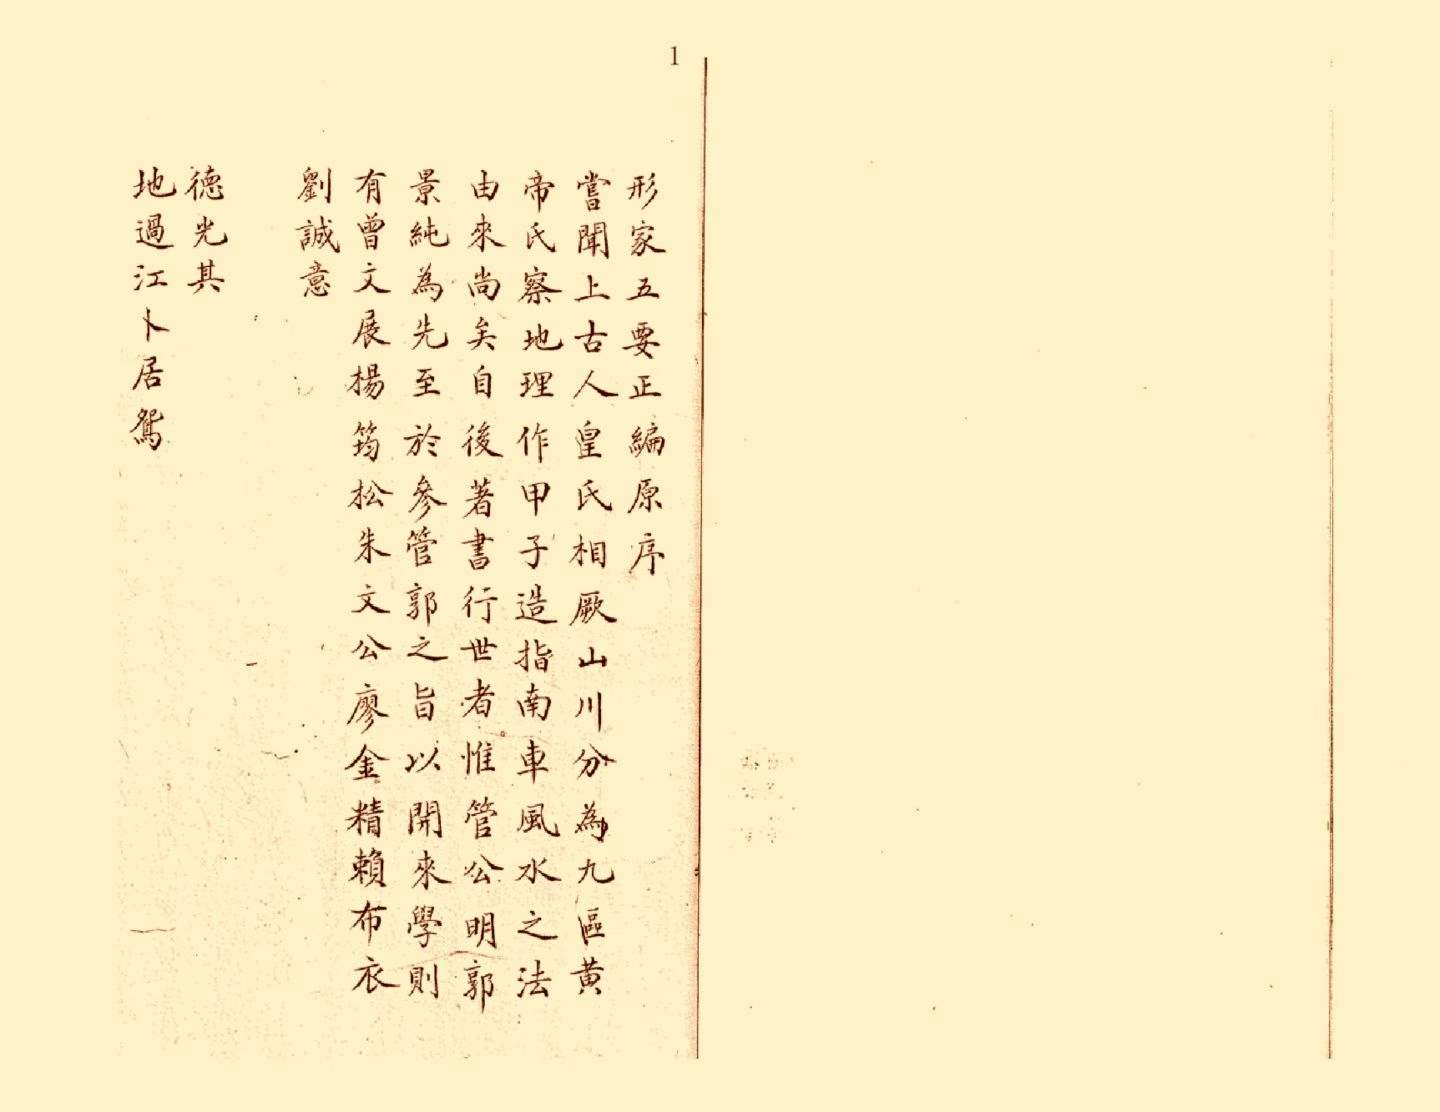 1
形家五要正編原序
嘗聞上古人皇氏相厥山川分為九區黃
帝氏察地理作甲子造指南車風水之法
由來尚矣自後著書行世者惟管公明郭
景純為先至於參管郭之旨以開來學則
有曾文展楊筠松朱文公廖金精賴布衣
劉誠意
德光其
地過江卜居鴛